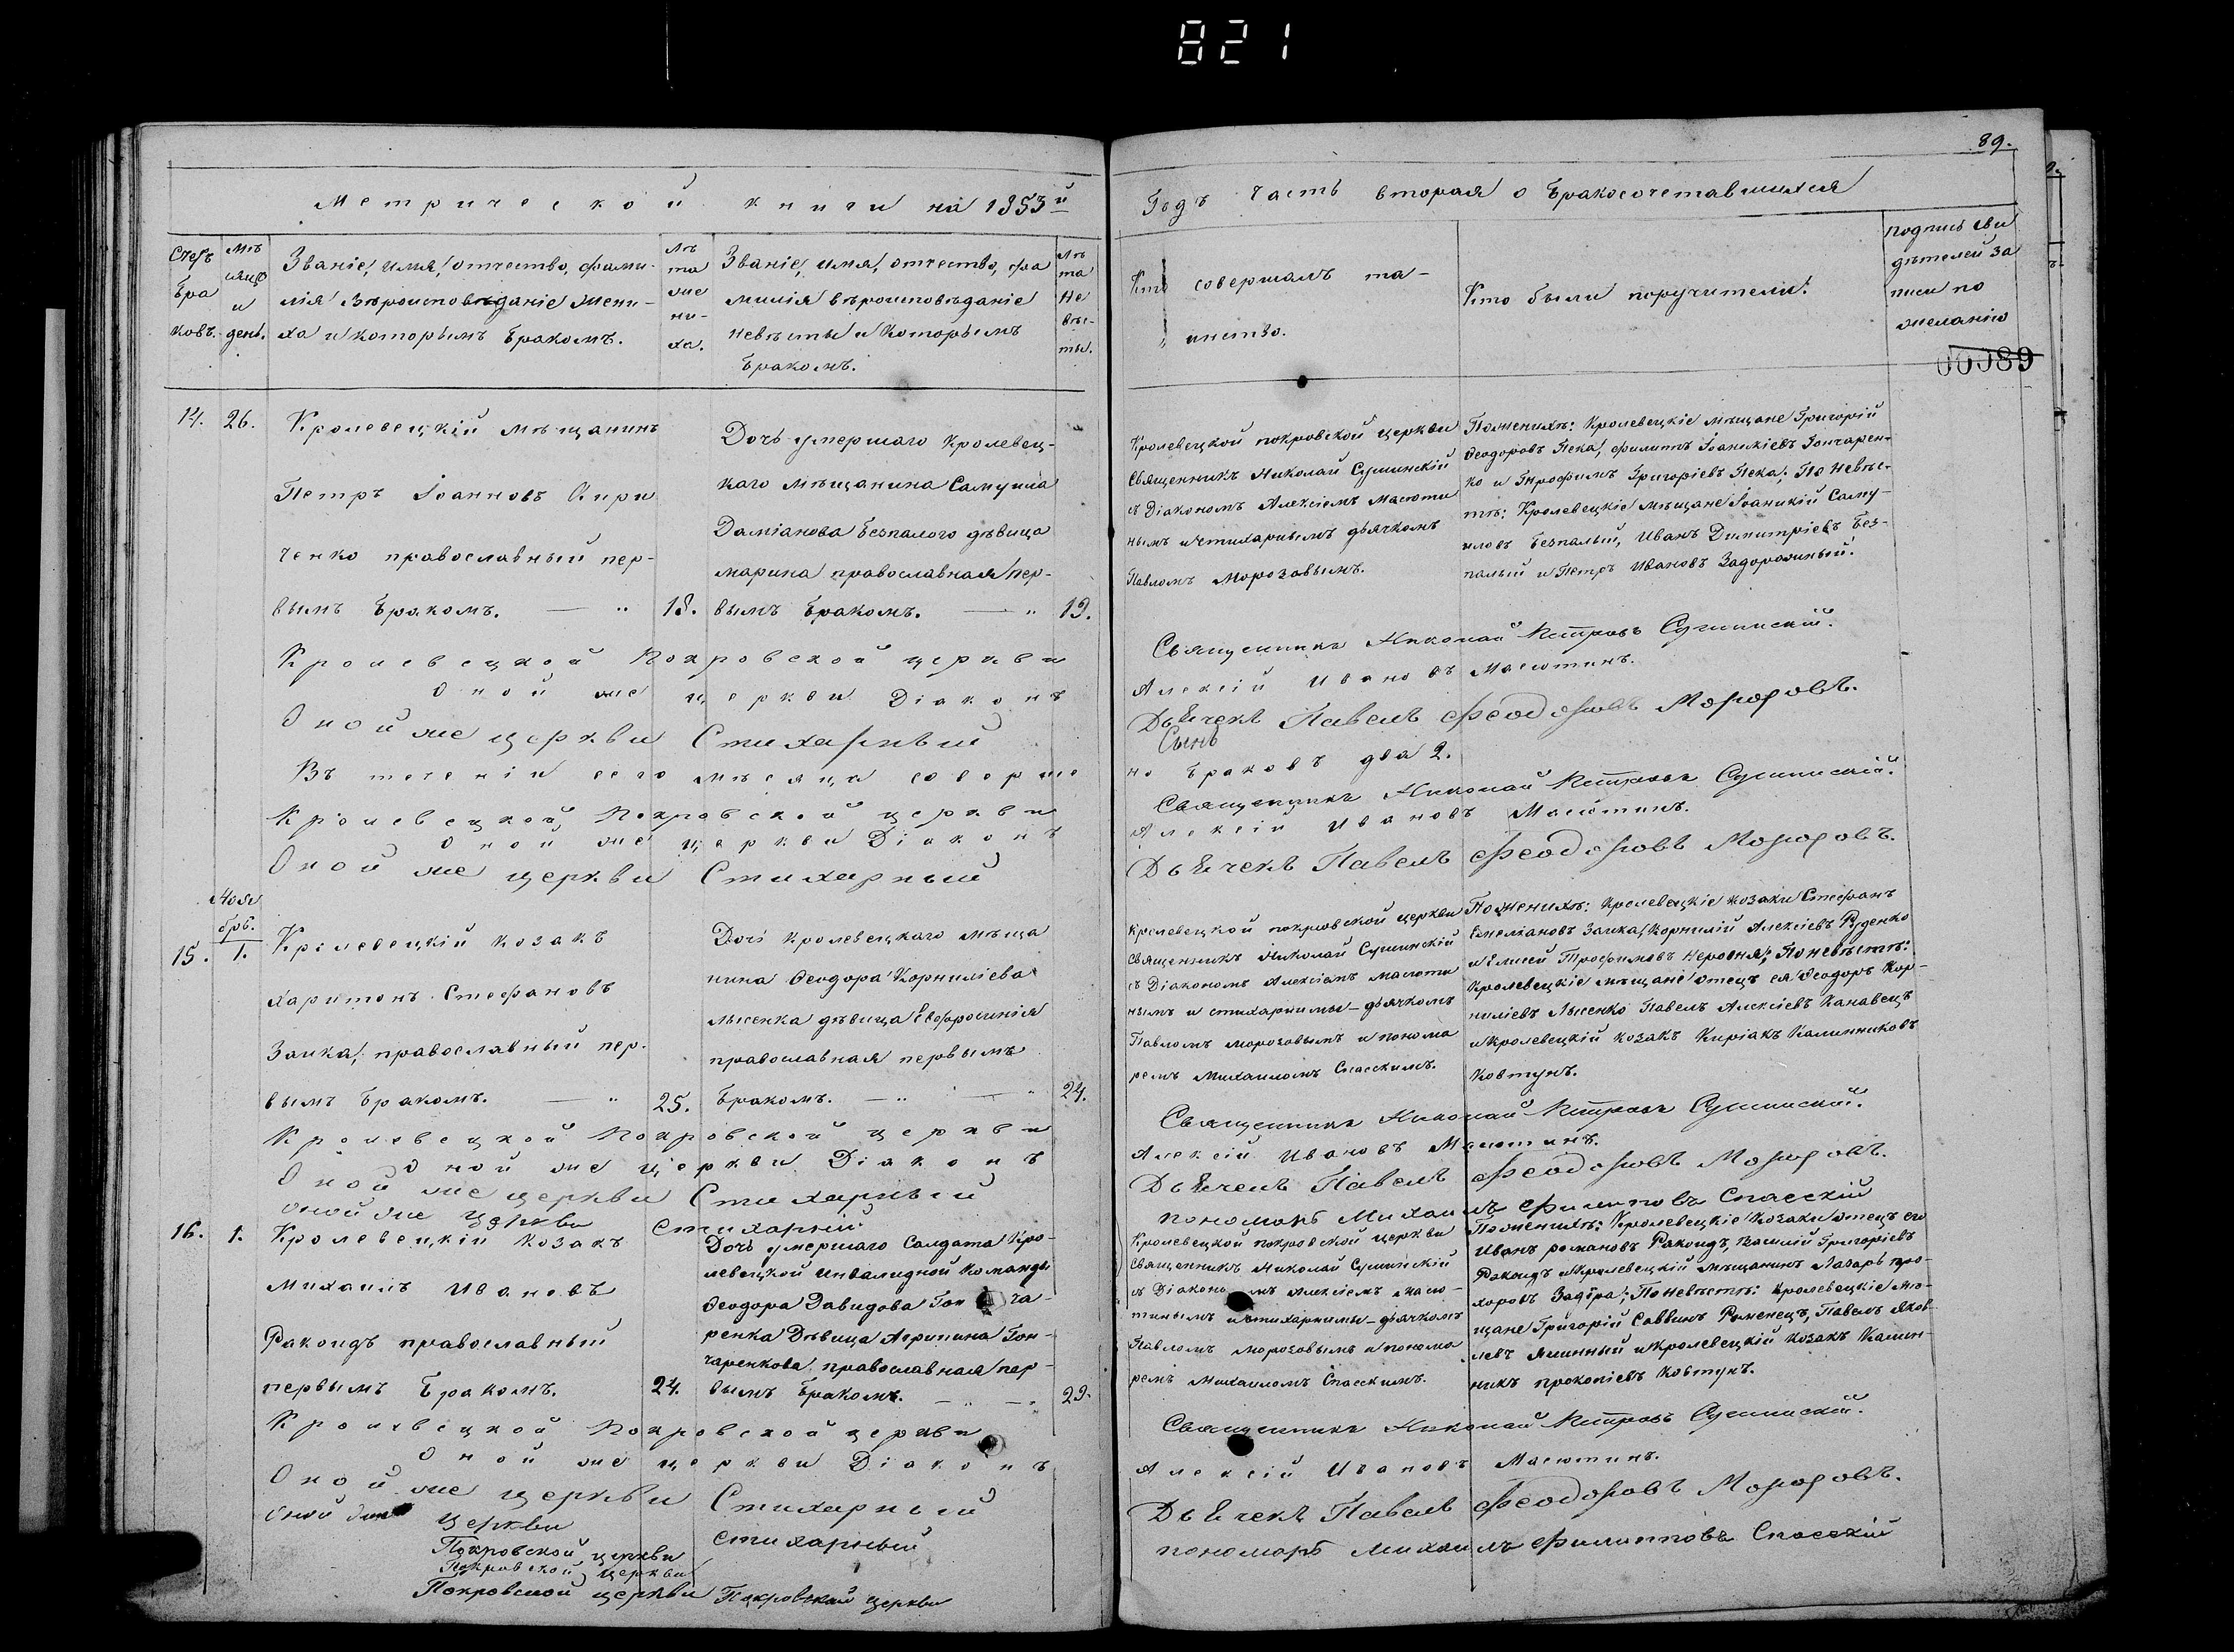 821
89.
Метрической книги на 1853й
Годъ Часть вторая о Бракосочетавшихся
Счетъ Браковъ.
Мѣсяцъ и день.
Званіе, имя, отчество, фами-
лія Вѣроисповѣданіе жени-
ха и которымъ Бракомъ.
Лѣта жени-ха.
Званіе, имя, отчество, фа
милія вѣроисповѣданіе
невѣсты и Которымъ
Бракомъ.
Лѣта Невѣсты.
Кто совершалъ та-
инство.
Кто были поручители.
подпись сви
дѣтелей за
писи по
желанію
00089
14. 26.
Кролевецкій мѣщанинъ
Петръ Іоанновъ Кири
ченко православный пер-
вымъ Бракомъ. — „ 18.
Дочь умершаго Кролевец-
каго мѣщанина Самуила
Даміанова Безпалого дѣвица
марина православная пер-
вымъ Бракомъ. — „ 19.
Кролевецкой покровской церкви
Священникъ Николай Сушинскій
съ Діакономъ Алексіемъ Масюти
нымъ и стихарнымъ дьячкомъ
Павломъ Морозовымъ.
Поженихѣ: Кролевецкіе мѣщане Григорій
Ѳеодоровъ Пека, Филиппъ Іоаникіевъ Гончарен-
ко и Трофимъ Григоріевъ Пека; По невѣс-
тѣ: Кролевецкіе мѣщане Іоаникій Саму-
иловъ Безпалый, Иванъ Димитріевъ Без-
палый и Петръ Ивановъ Задорожный.
Кролевецкой Покровской церкви Священникъ Николай Петровъ Сушинскій.
Оной же церкви Діаконъ Алексій Ивановъ Масютинъ.
Оной же церкви Стихарный Дьячекъ Павелъ Феодоровъ Морозовъ.
Въ теченіи сего мѣсяца соверше но Браковъ два 2.
Кролевецкой Покровской церкви Священникъ Николай Петровъ Сушинскій.
Оной же церкви Діаконъ Алексій Ивановъ Масютинъ.
Оной же церкви Стихарный Дьячекъ Павелъ Феодоровъ Морозовъ.
Ноя
брь.
15. 1.
Кролевецкій козакъ
Харитонъ Стефановъ
Заика, православный пер-
вымъ Бракомъ. — „ 25.
Дочь Кролевецкаго мѣща
нина Ѳеодора Корниліева
Лысенка дѣвица Евфросинія
православная первымъ
Бракомъ. — „ — „ 24.
Кролевецкой покровской церкви
Священникъ Николай Сушинскій
съ Діакономъ Алексіемъ Масюти
нымъ и стихарнымъ-дьячкомъ
Павломъ Морозовымъ и понома
ремъ Михаиломъ Спасскимъ.
Поженихѣ: Кролевецкіе козаки Стефанъ
Емеліановъ Заика, Корнилій Алексіевъ Руденко
и Елисей Трофимовъ Неровня; По невѣстѣ:
Кролевецкіе мѣщане отецъ ея Ѳеодоръ Кор-
ниліевъ Лысенко Павелъ Алексіевъ Канавецъ
и Кролевецкій козакъ Киріакъ Калинниковъ
Ковтунъ.
Кролевецкой Покровской церкви Священникъ Николай Петровъ Сушинскій.
Оной же церкви Діаконъ Алексій Ивановъ Масютинъ.
Оной же церкви Стихарный Дьячекъ Павелъ Феодоровъ Морозовъ.
Оной же церкви Стихарный пономарь Михаилъ Филиповъ Спасскій
16. 1.
Кролевецкій козакъ
Михаилъ Ивановъ
Ракоидъ православный
первымъ Бракомъ. 24.
Дочь умершаго Салдата Кро-
левецкой Инвалидной Команды
Ѳеодора Давидова Гонча-
ренка Дѣвица Агрипина Гон-
чаренкова православная пер-
вымъ Бракомъ. — „ — „ 29.
Кролевецкой покровской церкви
Священникъ Николай Сушинскій
съ Діакономъ Алексіемъ Масю-
тинымъ и стихарнымъ-дьячкомъ
Павломъ Морозовымъ и понома
ремъ Михаиломъ Спасскимъ.
Поженихѣ: Кролевецкіе Козаки отецъ его
Иванъ романовъ Ракоидъ, Василій Григоріевъ
Ракоидъ и Кролевецкій мѣщанинъ Лазарь про-
хоровъ Задіра; По невѣстѣ: Кролевецкіе мѣ-
щане Григорій Саввинъ Роменецъ, Павелъ Яков-
левъ и Кролевецкій козакъ Калин-
никъ прокопіевъ Ковтунъ.
Кролевецкой Покровской церкви Священникъ Николай Петровъ Сушинскій.
Оной же церкви Діаконъ Алексій Ивановъ Масютинъ.
Оной же церкви Стихарный Дьячекъ Павелъ Феодоровъ Морозовъ.
Оной церкви стихарный пономарь Михаилъ Филипповъ Спасскій
Покровской церкви
Покровской церкви
Покровской церкви Покровской церкви